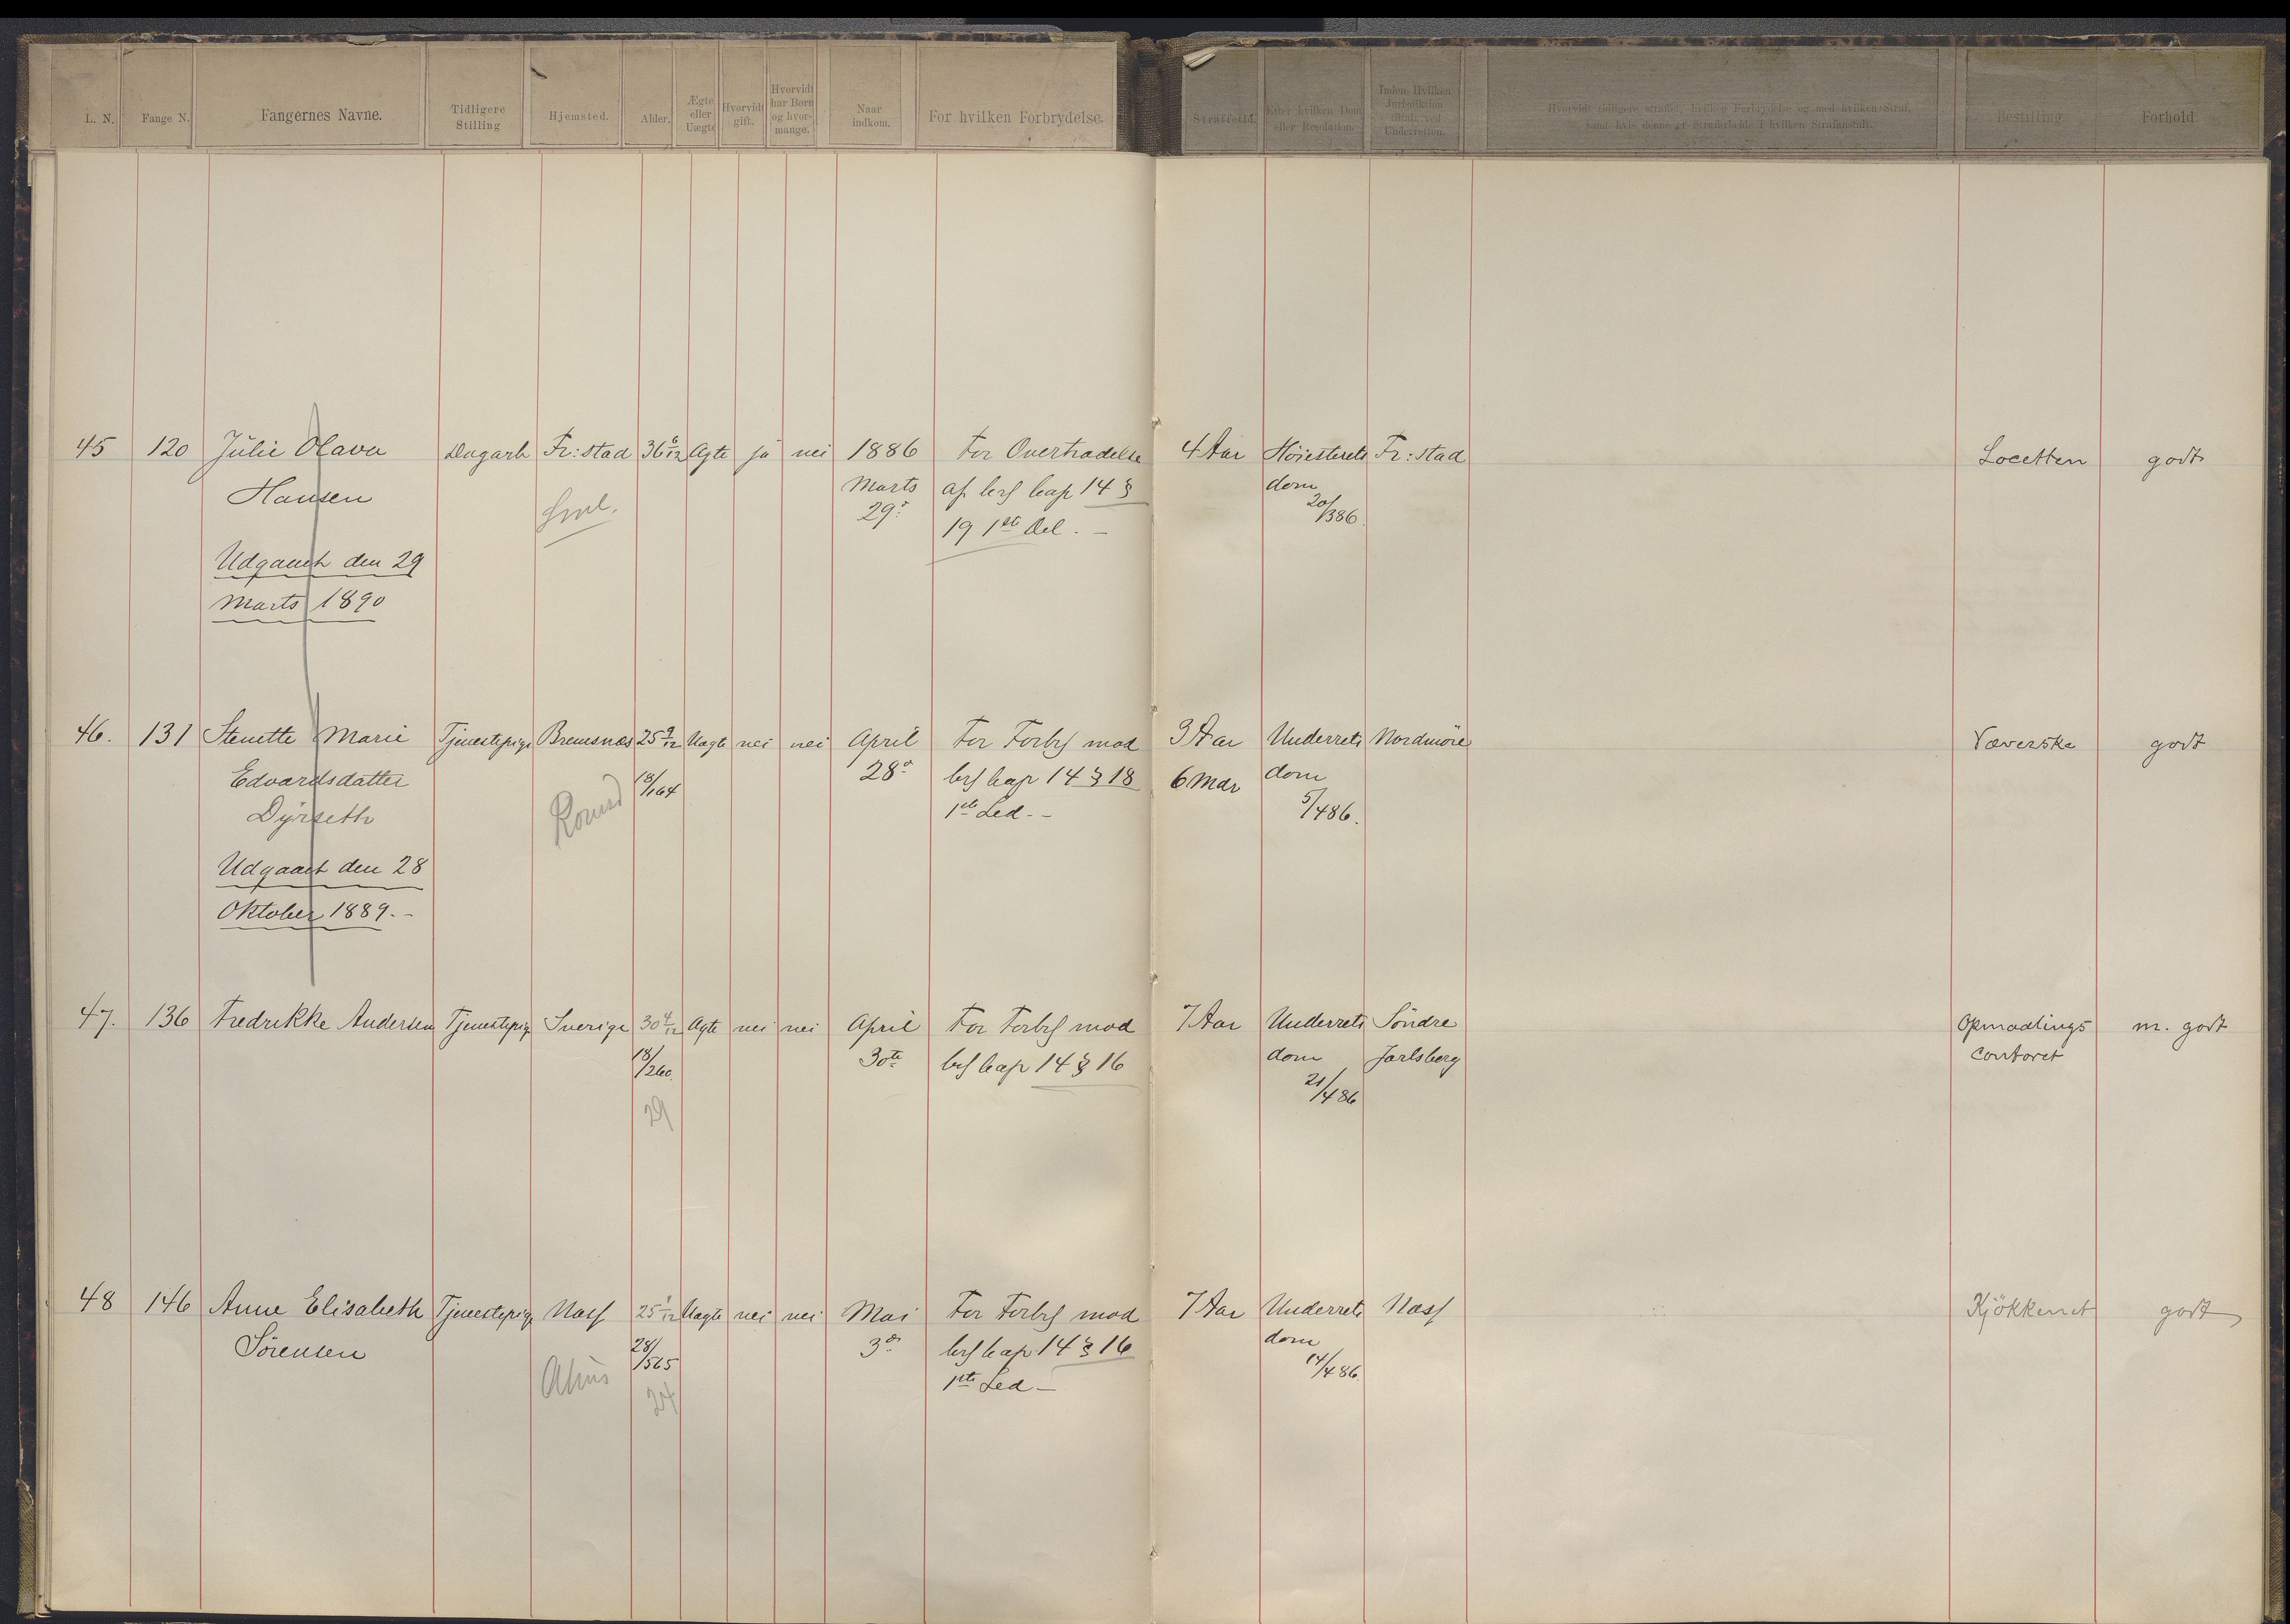 L. N.
Fange N.
Fangernes Navne.
Tidligere
Stilling
Hjemsted.
Alder.
Ægte
eller
Uægte
Hvorvidt
gift.
Hvorvidt
har Børn
og hvor-
mange.
Naar
indkom.
For hvilken Forbrydelse.
Straffetid.
Efter hvilken Dom
eller Resolution.
Inden Hvilken
Jurisdiktion
tiltalt ved
Underretten.
Hvorvidt tidligere straffet, hvilken Forbrydelse og med hvilken Straf,
samt hvis denne er Strafarbeide i hvilken Strafanstalt.
Bestilling
Forhold
45 120 Julie Olava Dagarb Fr: stad 36 6/12 Ægte ja nei 1886 For Overtrædelse 4 Aar Höiesterets Fr: stad Locetten godt
Hansen Marts af kap 14 § dom
Sml. 29 20/386.
19 1ste Del. –
Udgaaet den 29
Marts 1890
46. 131 Stenette Marie Tjenestepige Bremsnæs 25 9/12 Uægte nei nei April For Forbr mod 3 Aar Underrets Nordmöre Væverske godt
Edvardsdatter 18/164 28de kap 14 § 18 6 Mdr dom
Dyrseth Romsd 1ste Led. – 5/486.
Udgaaet den 28
Oktober 1889. –
47. 136 Fredrikke Andersen Tjenestepige Sverige 30 4/12 Ægte nei nei April For Forbr mod 7 Aar Underrets Söndre Opmadlings m. godt
18/260. 30te kap 14 § 16 dom Jarlsberg contoret
29 21/486
48 146 Anne Elisabeth Tjenestepige Næss 25 1/12 Uægte nei nei Mai For Forbr mod 7 Aar Underrets Næss Kjökkenet godt
Sörensen 28/565 3de kap 14 § 16 dom
Ahus 24 1ste Led – 14/486.